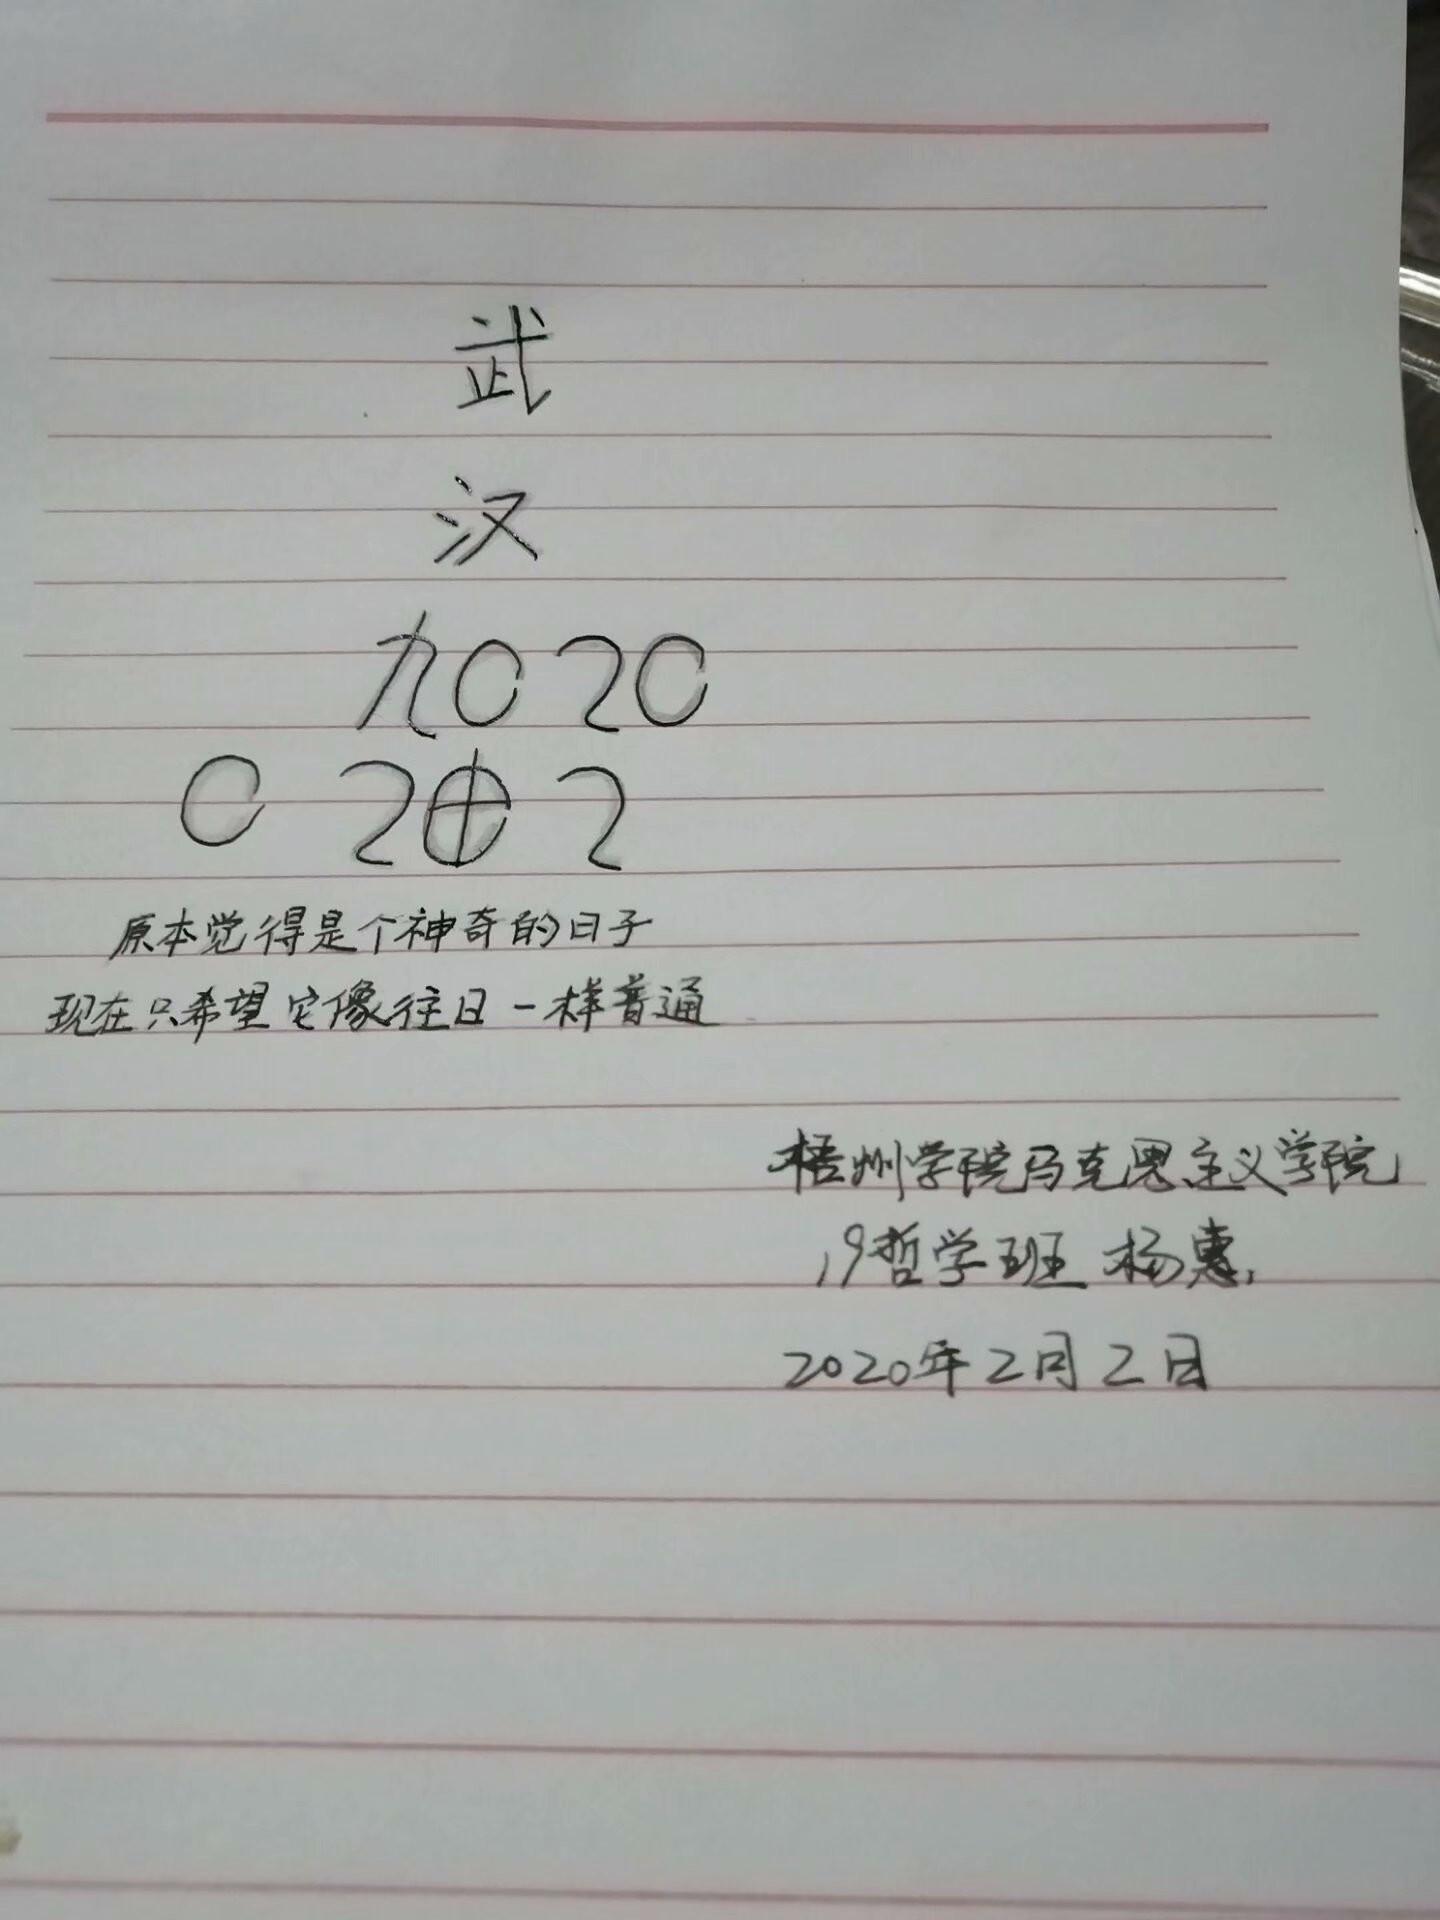 武
汉
九0 20
0 2⊕ 2
原本觉得是个神奇的日子
现在只希望它像往日一样普通
梧州学院马克思主义学院
19哲学班 杨惠
2020年2月2日